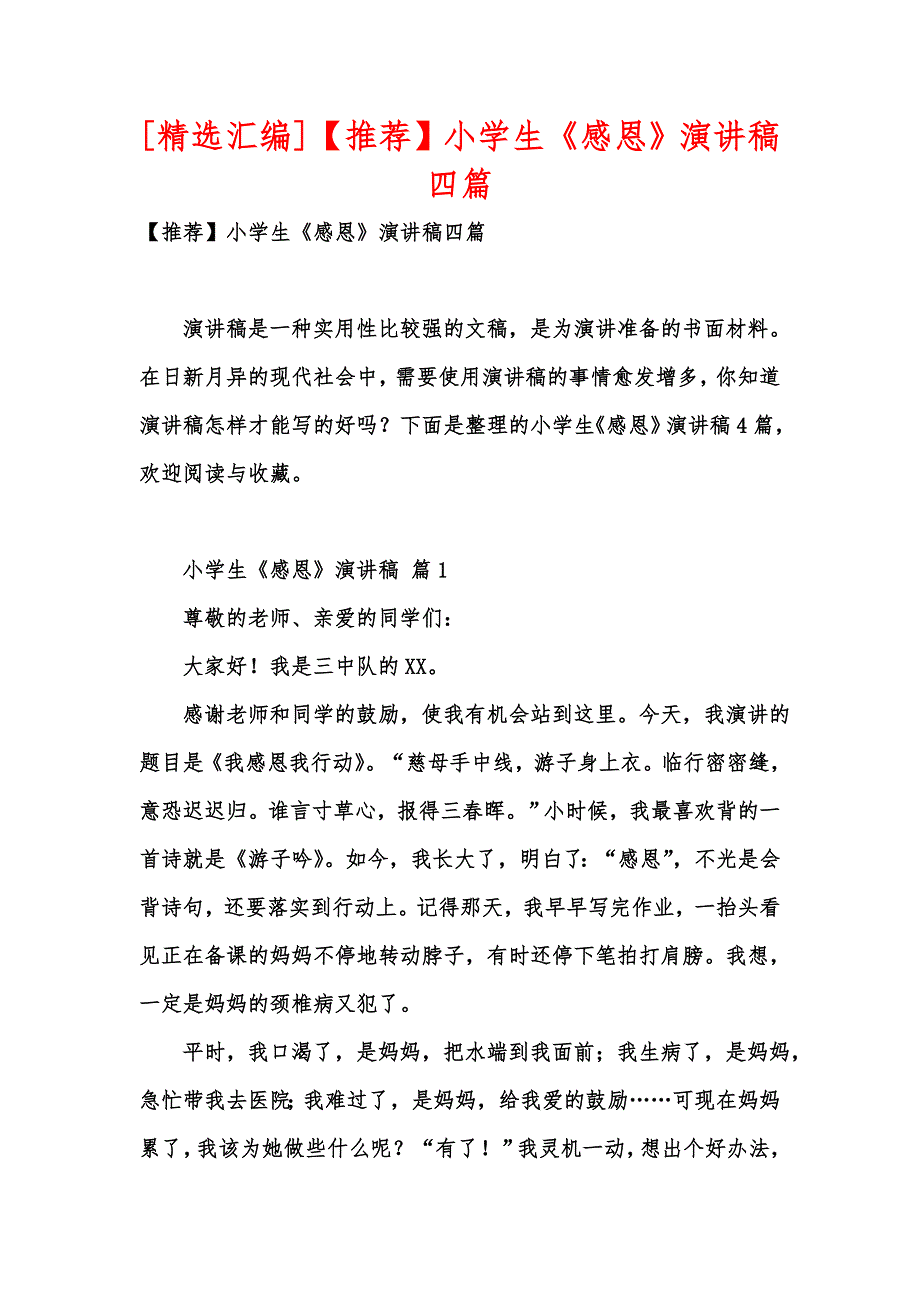 [精选汇编]【推荐】小学生《感恩》演讲稿
四篇
【推荐】小学生《感恩》演讲稿四篇
演讲稿是一种实用性比较强的文稿，是为演讲准备的书面材料。
在日新月异的现代社会中，需要使用演讲稿的事情愈发增多，你知道
演讲稿怎样才能写的好吗？下面是整理的小学生《感恩》演讲稿4篇，
欢迎阅读与收藏。
小学生《感恩》演讲稿 篇1
尊敬的老师、亲爱的同学们：
大家好！我是三中队的XX。
感谢老师和同学的鼓励，使我有机会站到这里。今天，我演讲的
题目是《我感恩我行动》。“慈母手中线，游子身上衣。临行密密缝，
意恐迟迟归。谁言寸草心，报得三春晖。”小时候，我最喜欢背的一
首诗就是《游子吟》。如今，我长大了，明白了：“感恩”，不光是会
背诗句，还要落实到行动上。记得那天，我早早写完作业，一抬头看
见正在备课的妈妈不停地转动脖子，有时还停下笔拍打肩膀。我想，
一定是妈妈的颈椎病又犯了。
平时，我口渴了，是妈妈，把水端到我面前；我生病了，是妈妈，
急忙带我去医院；我难过了，是妈妈，给我爱的鼓励……可现在妈妈
累了，我该为她做些什么呢？“有了！”我灵机一动，想出个好办法，